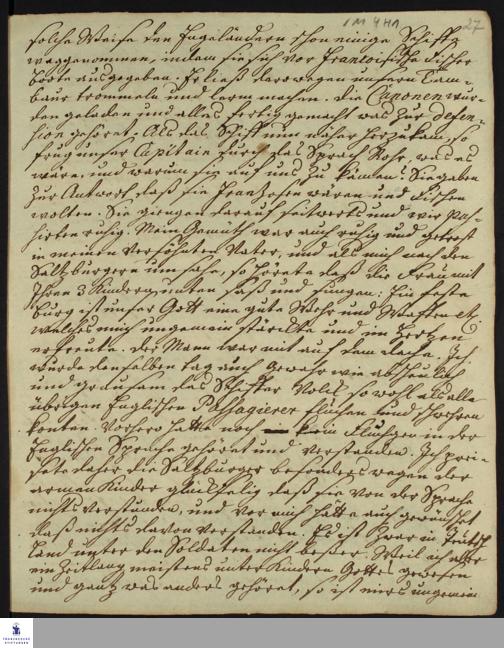 1 M 4 H 1
27
solche Weise den Engeländern schon einige Schiffe
weggenommen, indem sie sich vor Frantzösische Fischer
Boote ausgegeben. Er ließ deßwegen unsern Tam-
baur trommeln und lerm machen. die Canonen wur-
den geladen und alles fertig gemacht was zur defen-
sion gehöret. Als das Schiff nun näher herzu kam, so
frug unser Capitain durch das Sprach Rohr, was es
wäre, und warum sie auf uns zu kämen? Sie gaben
zur Antwort daß sie Franzosen wären und Fischen
wolten. Sie giengen darauf seitwerts und wir pas-
sirten ruhig. Mein Gemüth war auch ruhig und getrost
in meinen versöhnten Vater, und als mich nach den
Saltzburgern umsahe, so hörete daß die Frau mit
Ihren 3 Kindern unten saß und sungen: Ein feste
burg ist unser Gott eine gute Wehr und Waffen etc.
welches mich ungemein stärckte und im Hertzen
erfreute. Der Mann war mit auf dem
wurde denselben tag auch gewahr wie abscheulich
und grausam das Schiffer Volck so wohl als alle
übrigen Englischen Passagierer fluchen und schweren
konten. Vorhero hatte noch kein Fluchen in der
Englischen Sprache gehöret und verstanden. Ich prei-
sete daher die Saltzburger besonders wegen der
armen Kinder glückselig daß sie von der Sprache
nichts verstanden, und vor mich hätte auch gewünschet
daß nichts davon verstanden. Es ist zwar in Teutsch
land unter den Soldaten nicht beßer. Weil ich aber
ein Zeitlang meistens unter Kindern Gottes gewesen
und gantz was anders gehöret, so ist mirs ungemein
FRANCKESCHE
STIFTUNGEN